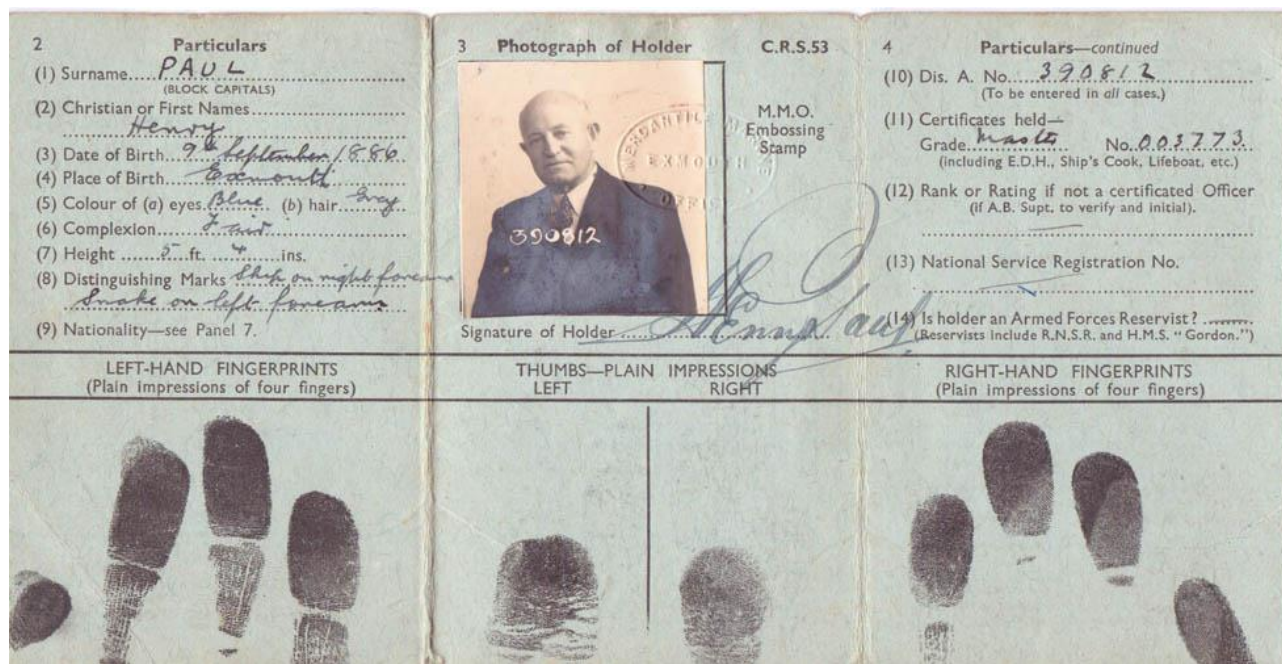 2 Particulars
(1) Surname....PAUL
(BLOCK CAPITALS)
(2) Christian or First Names
Henry
(3) Date of Birth 9th September 1886
(4) Place of Birth Exmouth
(5) Colour of (a) eyes Blue (b) hair Gray
(6) Complexion
(7) Height 5 ft. 4 ins.
(8) Distinguishing Marks Ship on right forearm
Snake on left forearm
(9) Nationality—see Panel 7.
3 Photograph of Holder C.R.S.53
MERCANTILE MARINE
EXMOUTH
OFFICE
M.M.O.
Embossing
Stamp
390812
Signature of Holder Henry Paul
4 Particulars—continued
(10) Dis. A. No. 390812
(To be entered in all cases.)
(11) Certificates held—
Grade Master No. 003773
(including E.D.H., Ship's Cook, Lifeboat, etc.)
(12) Rank or Rating if not a certificated Officer
(if A.B. Supt. to verify and initial).
(13) National Service Registration No.
(14) Is holder an Armed Forces Reservist?
(Reservists include R.N.S.R. and H.M.S. "Gordon.")
LEFT-HAND FINGERPRINTS
(Plain impressions of four fingers)
THUMBS—PLAIN IMPRESSIONS
LEFT RIGHT
RIGHT-HAND FINGERPRINTS
(Plain impressions of four fingers)